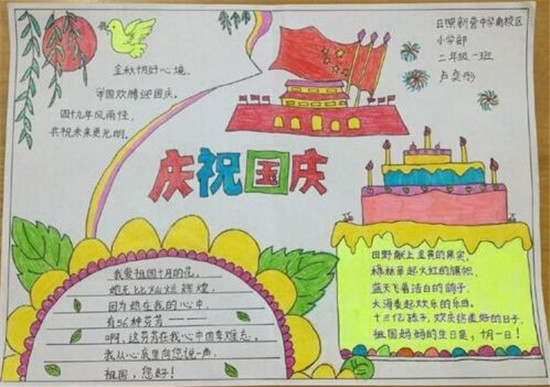 金秋十月好心境,
举国欢腾迎国庆。
四十九年风雨恒,
共祝未来更光明。
日照新营中学南校区
小学部
二年级一班
庆祝国庆
我爱祖国十月的花,
她无比灿烂辉煌
因为想在我的心中,
有56种芬芳
啊,这芬芳在我心中回率难忘,
我从心底里向您说一声,
祖国,您好!
田野献上金黄的果实,
森林举起火红的旗帜,
蓝天飞着洁白的鸽子,
大海奏起欢乐的乐曲。
十三亿孩子,欢庆这美好的日子
祖国妈妈的生日是,十月一日!